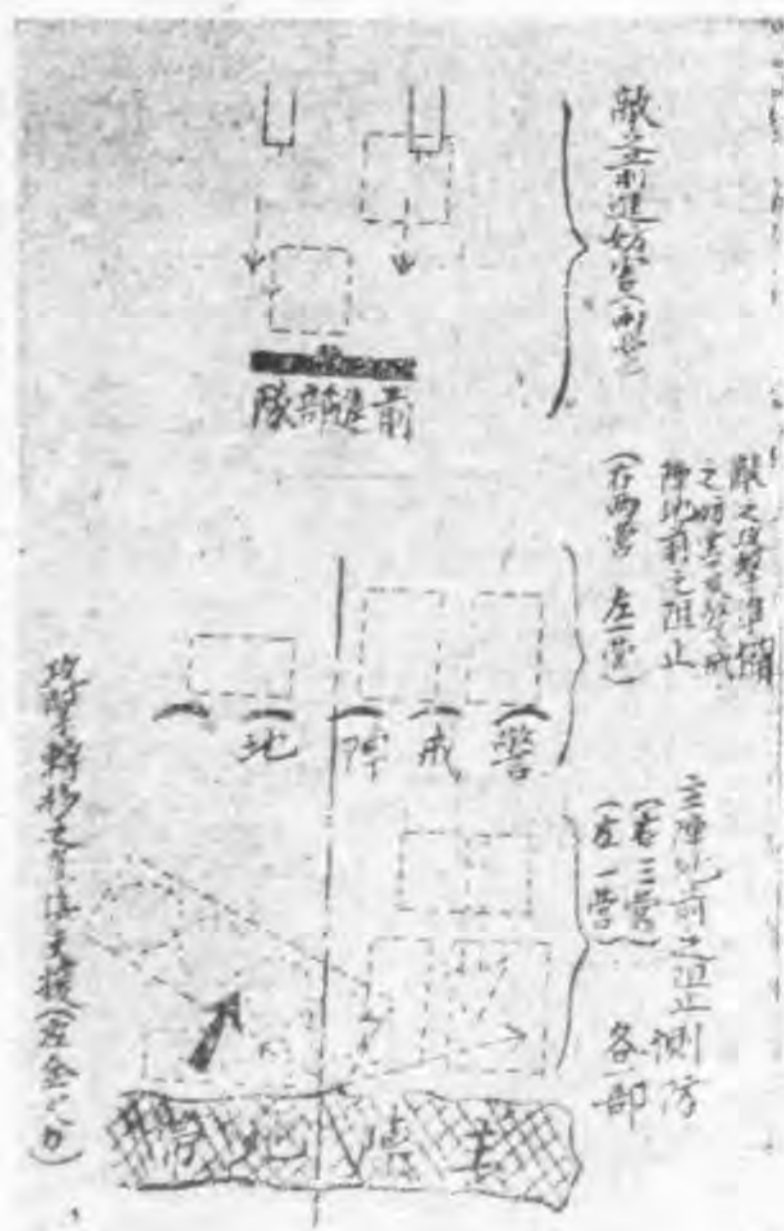 敵之前進妨害(兩營)
前進部隊
敵之攻擊準備
之妨害及警戒
陣地前之阻止
(右兩營 左一營)
警戒陣地
主陣地前之阻止
(右三營)
(左一營)
側防
各一部
主陣地
攻擊轉移之
支援(左全力)